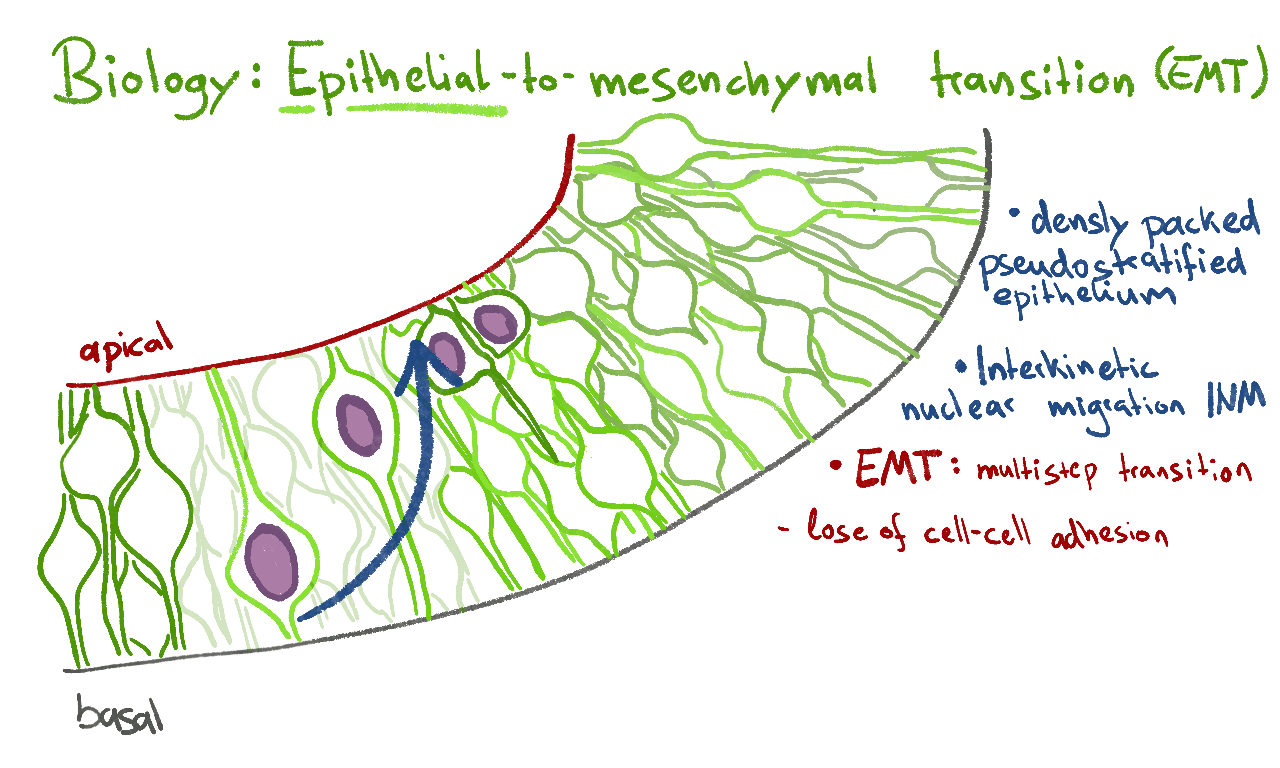 Biology: Epithelial-to-mesenchymal transition (EMT)
• densly packed
pseudostratified
epithelium
apical
• Interkinetic
nuclear migration INM
• EMT: multistep transition
- lose of cell-cell adhesion
basal